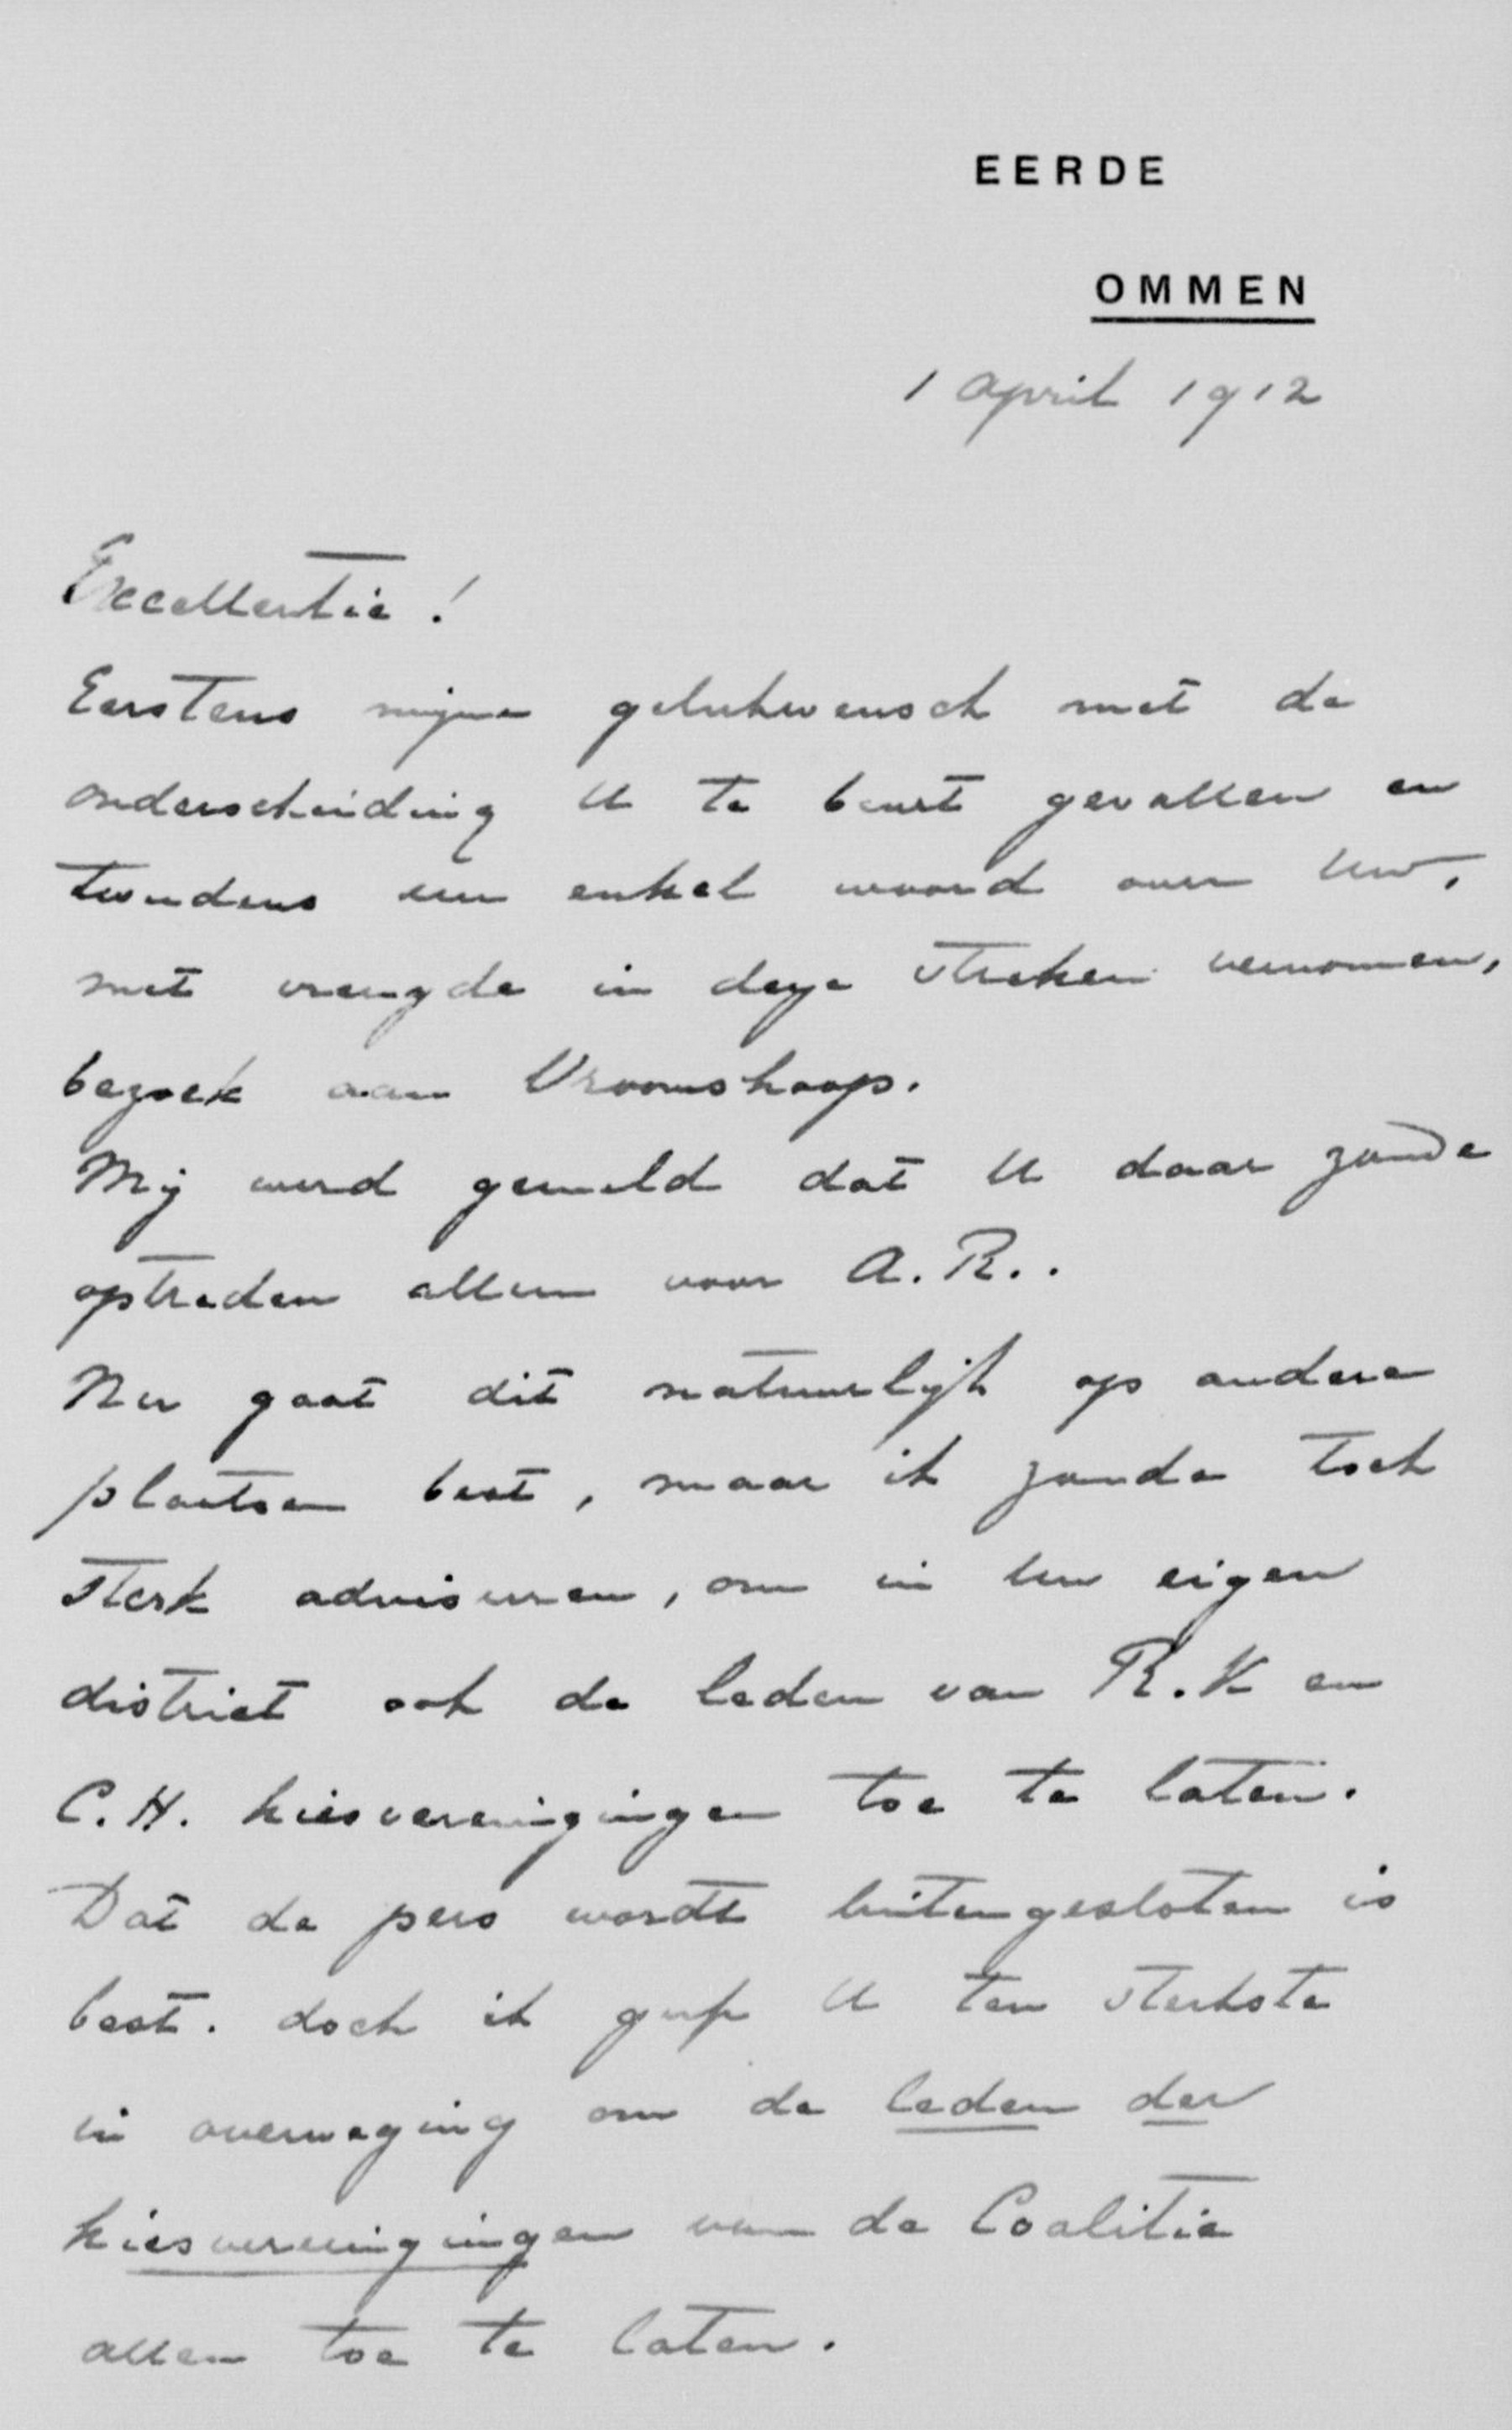 EERDE
OMMEN
1 April 1912
Excellentie!
Eerstens mijne gelukwensch met de
onderscheiding U te beurt gevallen en
tweedens een enkel woord over Uw,
met vreugde in deze streken vernomen,
bezoek aan Vroomshoop.
Mij werd gemeld dat U daar zoude
optreden alleen voor A.R..
Nu gaat dit natuurlijk op andere
plaatsen best, maar ik zoude toch
sterk adviseeren, om in Uw eigen
district ook de leden van R.K en
C.H. kiesvereenigingen toe te laten.
Dat de pers wordt buitengesloten is
best. doch ik geef U ten sterkste
in overweging om de leden der
kiesvereenigingen van de Coalitie
allen toe te laten.